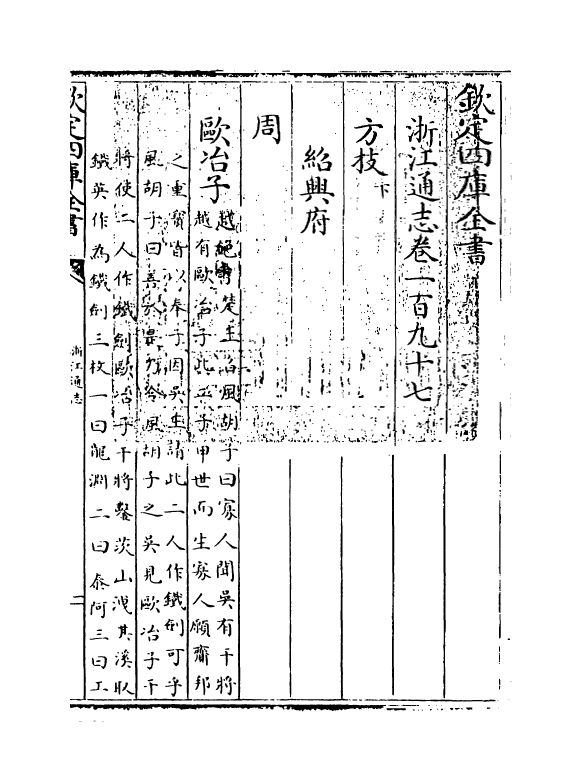 欽定四庫全書
浙江通志卷一百九十七
方技下
紹興府
周
歐冶子越絶書楚王召風胡子曰寡人聞吳有干將
越有歐冶子此二子甲世而生寡人願齎邦
之重寶皆以奉子因吳王請此二人作鐵劍可乎
風胡子曰善於是乃令風胡子之吳見歐冶子干
將使二人作鐵劍歐冶子干將鑿茨山洩其溪取
鐵英作為鐵劍三枚一曰龍淵二曰泰阿三曰工
欽定四庫全書
浙江通志